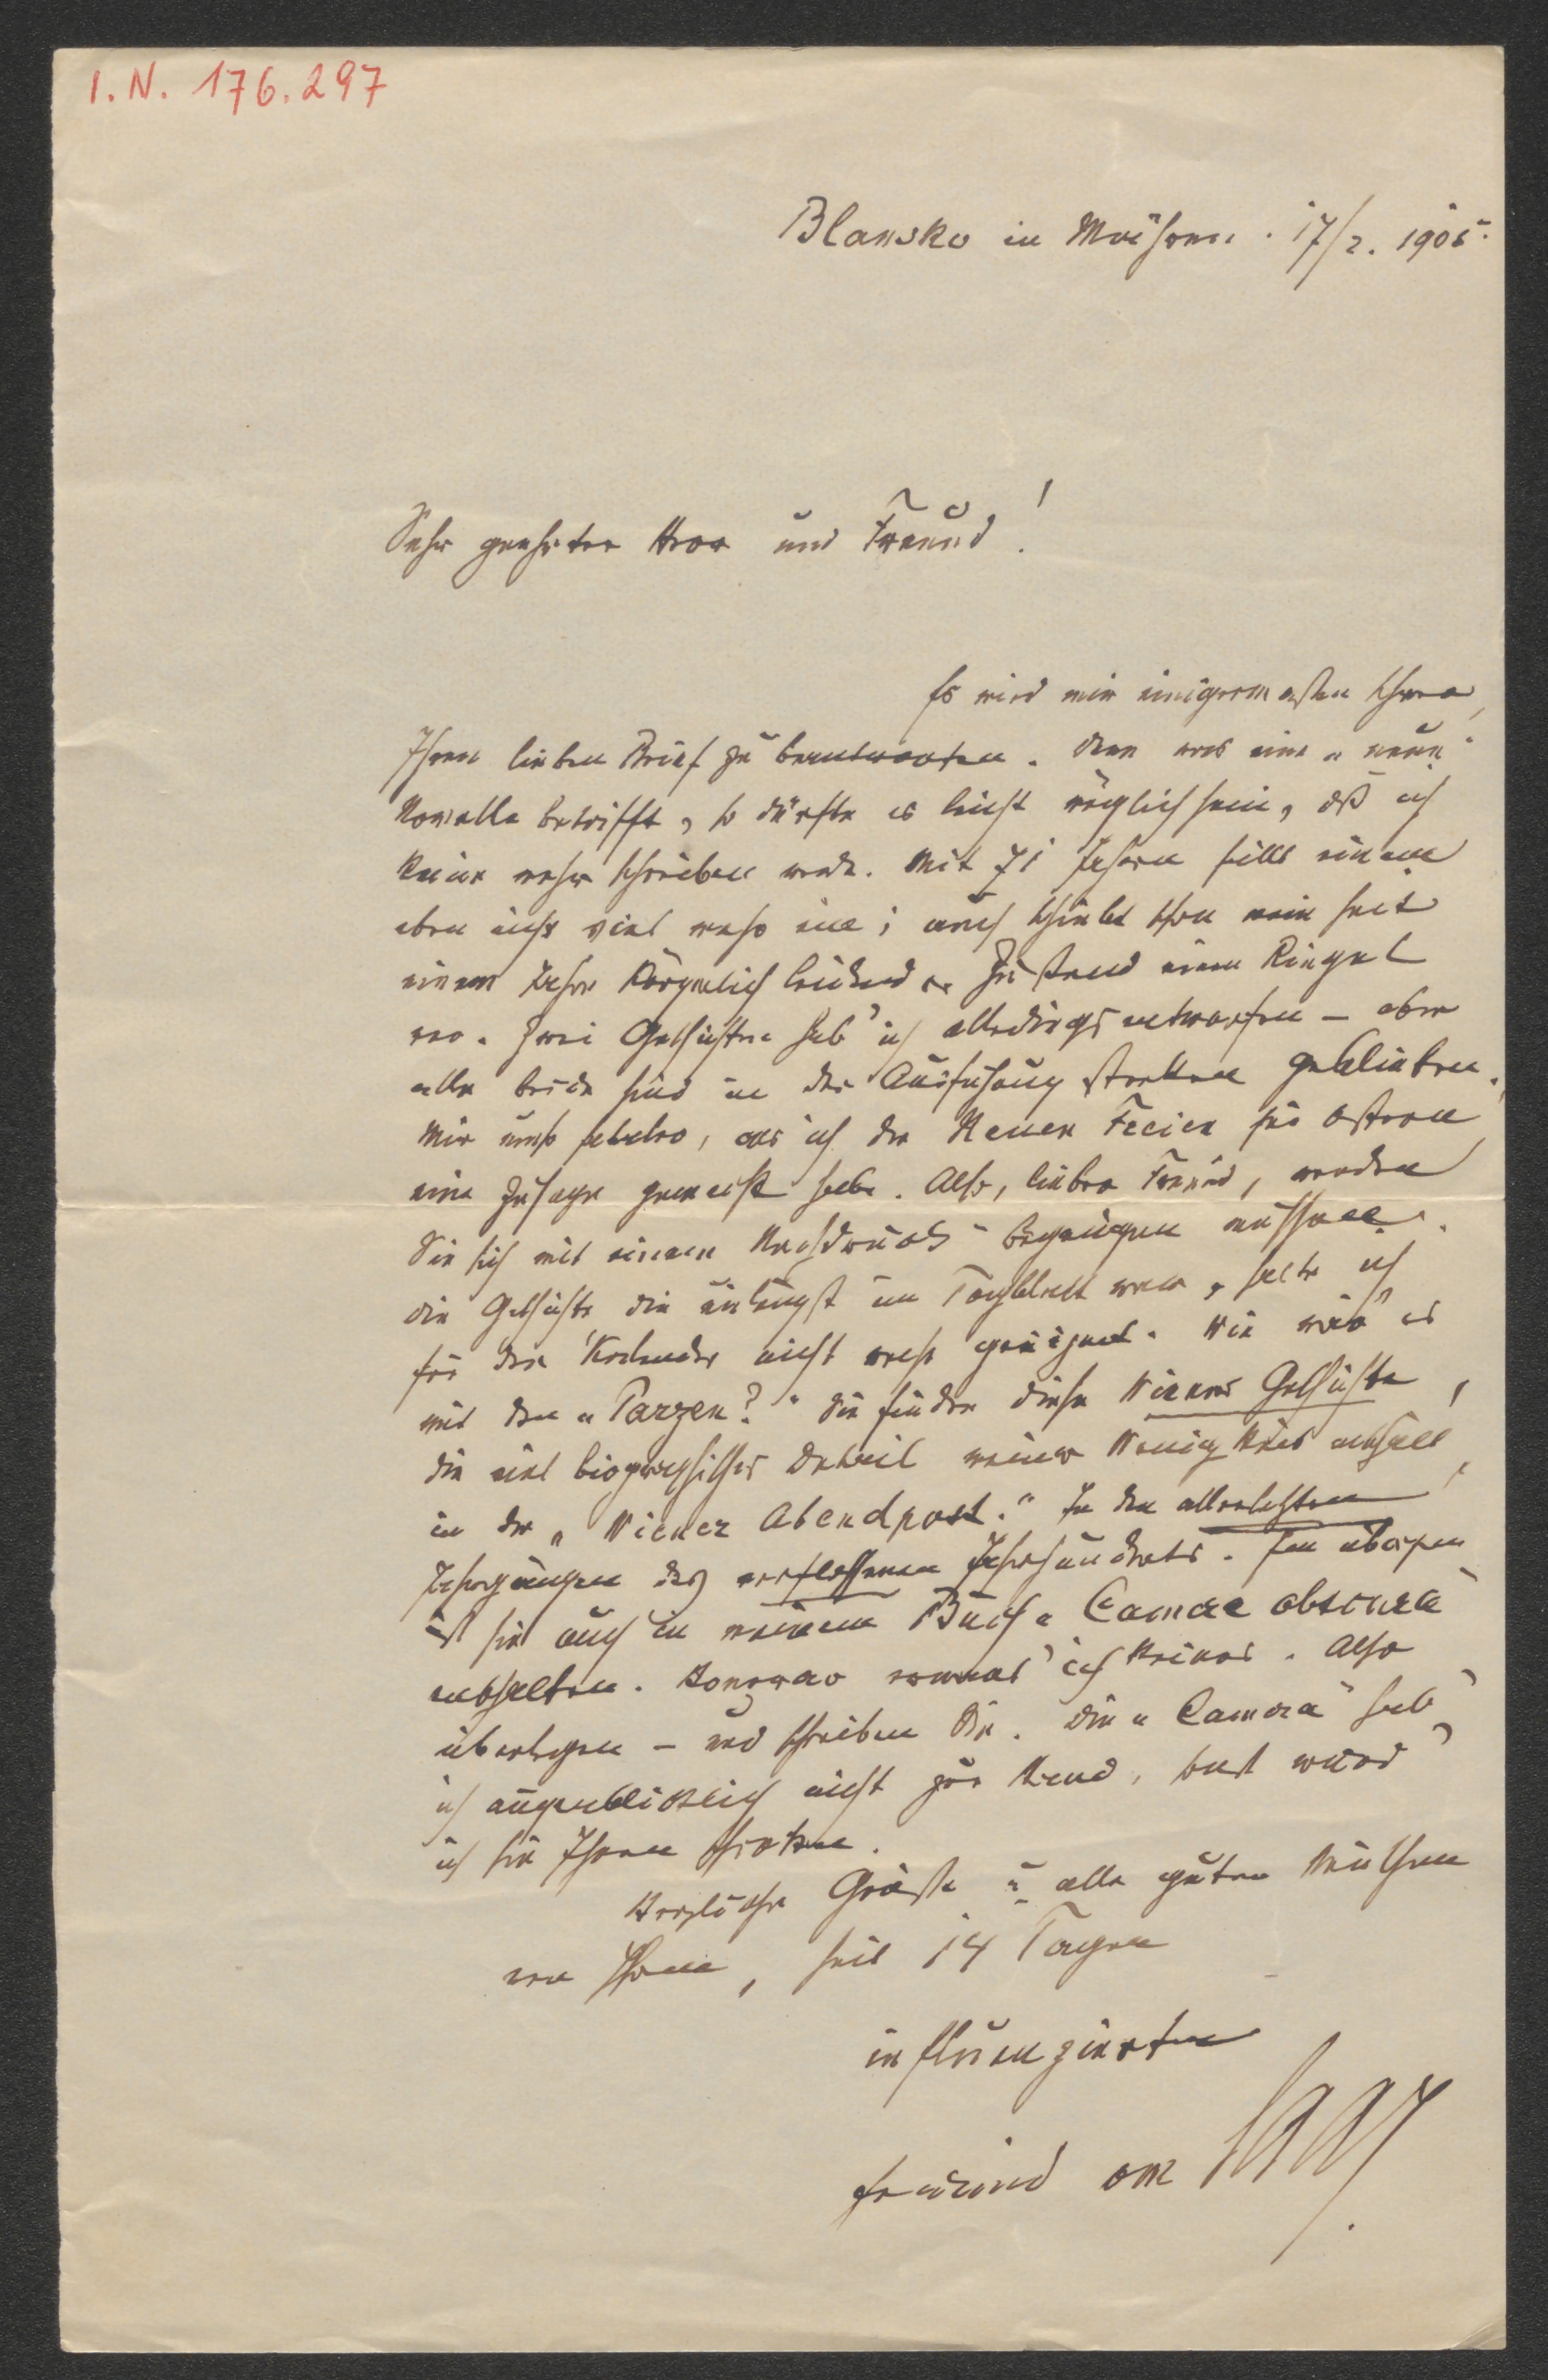 I. N. 176.297
Blansko in Mähren. 17/2. 1905.
Sehr geehrter Herr und Freund!
Es wird mir einigermaßen schwer,
Ihren lieben Brief zu beantworten. Denn was eine „neue“
Novelle betrifft, so dürfte es leicht möglich sein, daß ich
keine mehr schreiben werde. Mit 71 Jahren fällt einem
eben nicht viel mehr ein; auch schiebt schon mein seit
einem Jahre körperlich leidender Zustand einen Riegel
vor. Zwei Geschichten hab' ich allerdings entworfen – aber
alle beide sind in der Ausführung stecken geblieben.
Mir umso fataler, als ich der Neuen Freien für Ostern
eine Zusage gemacht habe. Also, lieber Freund, werden
Sie sich mit einem Nachdruck begnügen müssen.
Die Geschichte, die unlängst im Tagblatt war, halte ich
für den Kalender nicht recht geeignet. Wie wär' es
mit den „Parzen?“ Sie finden diese Wiener Geschichte,
die viel biographisches Detail meiner Wenigkeit enthält,
in der „Wiener Abendpost.“ In den allerletzten
Jahrgängen des verflossenen Jahrhunderts. Im übrigen
ist sie auch in meinem Buch „Camera obscura“
enthalten. Honorar verlang' ich keines. Also
überlegen – und schreiben Sie. Die „Camera“ hab'
ich augenblicklich nicht zur Hand, sonst würd'
ich sie Ihnen schicken.
Herzliche Grüße u. alle guten Wünsche
von Ihrem, seit 14 Tagen
influenzierten
Ferdinand von Saar.